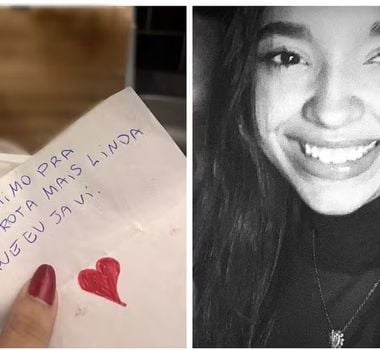 IMO PRA
ROTA MAIS LINDA
UE EU JA VI.